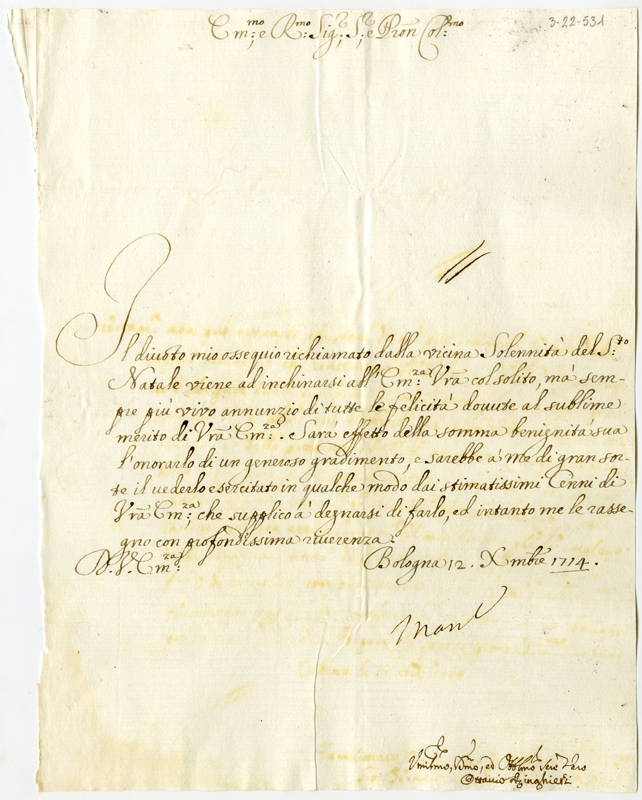 Em:mo e R:mo Sig:r, S:r, e Pron Col:mo
3-22-531
Il diuoto mio ossequio richiamato dalla vicina Solennità del S:to
Natale viene ad inchinarsi all' Em:za Vrã col solito, mà sem-
pre più vivo annunzio di tutte le felicità douute al sublime
merito di Vrã Em:za. Sarà effetto della somma benignità sua
l'onorarlo di un generoso gradimento, e sarebbe à me di gran sor-
te il vederlo esercitato in qualche modo dai stimatissimi Cenni di
Vrã Em:za, che supplico à degnarsi di farlo, ed intanto me le rasse-
gno con profondissima riuerenza
D. V. Em:za
Bologna 12. Xmbre 1714.
Ottavio